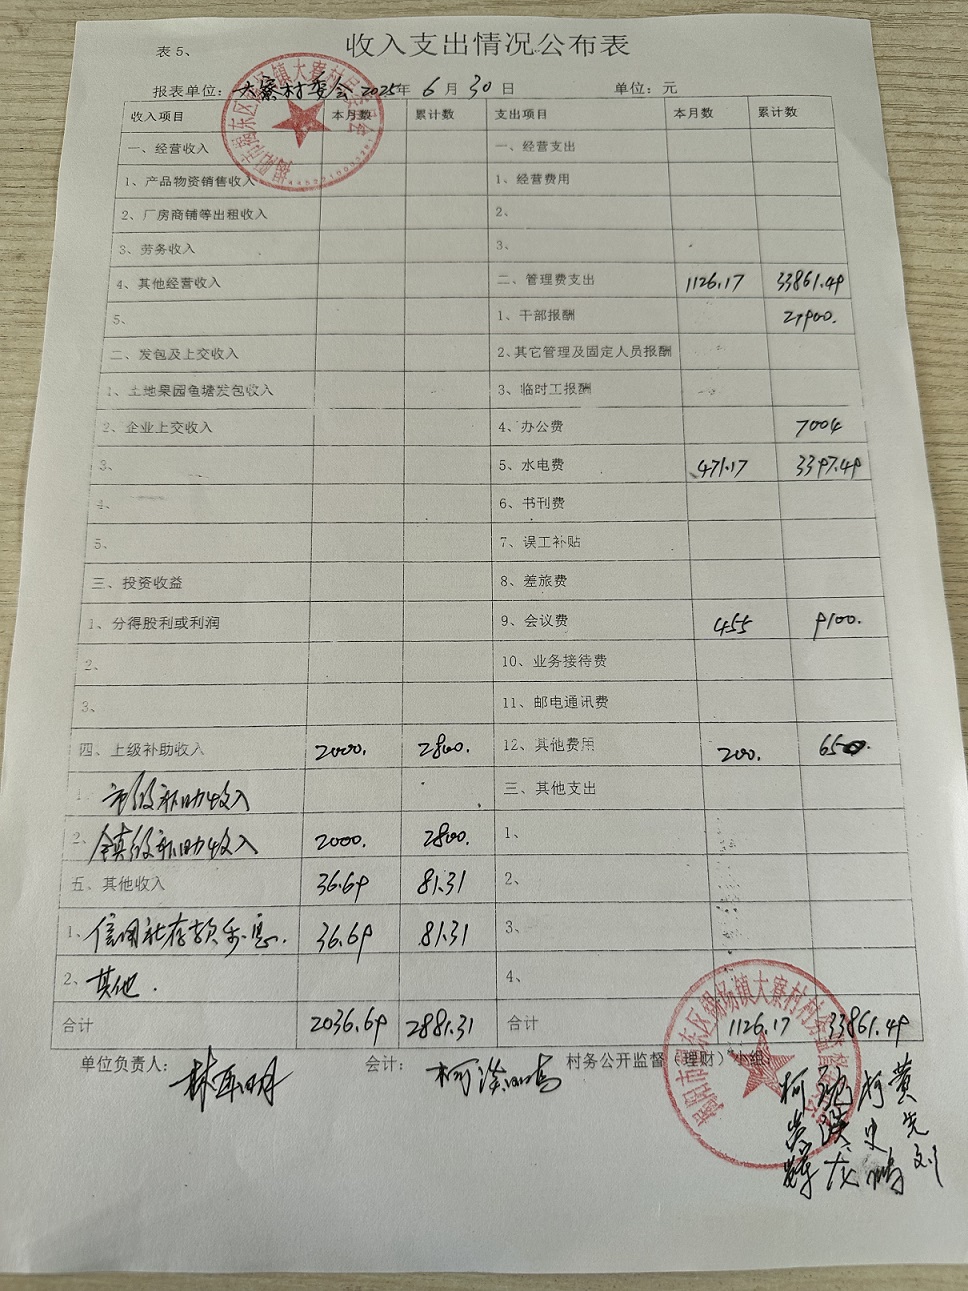 表5、
收入支出情况公布表
报表单位：大寨村委会 2025年 6月 30日 单位：元
收入项目 本月数 累计数 支出项目 本月数 累计数
一、经营收入 一、经营支出
1、产品物资销售收入 1、经营费用
2、厂房商铺等出租收入 2、
3、劳务收入 3、
4、其他经营收入 二、管理费支出 1126.17 33861.49
5、 1、干部报酬
二、发包及上交收入 2、其它管理及固定人员报酬
1、土地果园鱼塘发包收入 3、临时工报酬
2、企业上交收入 4、办公费 7004
3、 5、水电费 471.17 3397.49
4、 6、书刊费
5、 7、误工补贴
三、投资收益 8、差旅费
1、分得股利或利润 9、会议费 455 9100.
2、 10、业务接待费
3、 11、邮电通讯费
四、上级补助收入 2000. 2800. 12、其他费用 200. 650.
1、市级补助收入 三、其他支出
2、镇级补助收入 2000. 2800. 1、
五、其他收入 36.69 81.31 2、
1、信用社存款利息. 36.69 81.31 3、
2、其他. 4、
合计 2036.69 2881.31 合计 1126.17 33861.49
单位负责人： 会计： 村务公开监督（理财）小组：